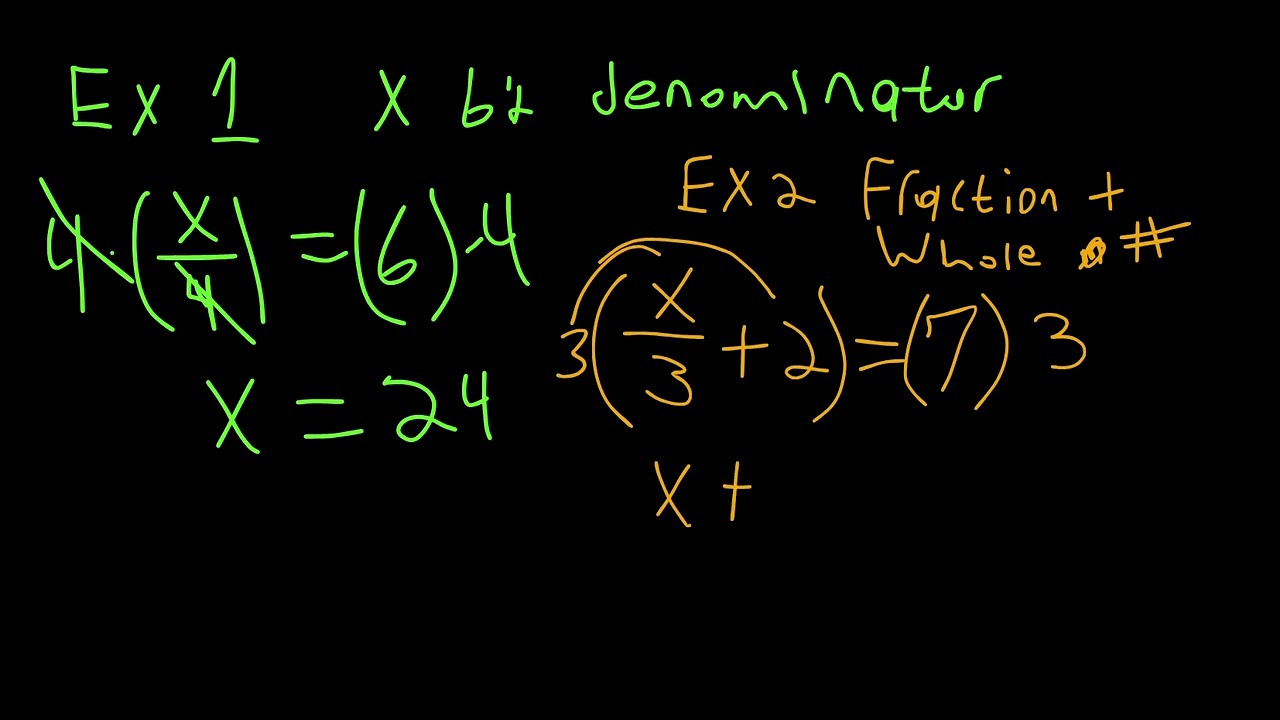 Ex 1 X by denominator
4·(x/4) = (6)·4
x = 24
EX 2 Fraction +
Whole #
3(x/3 + 2) = (7) 3
x +